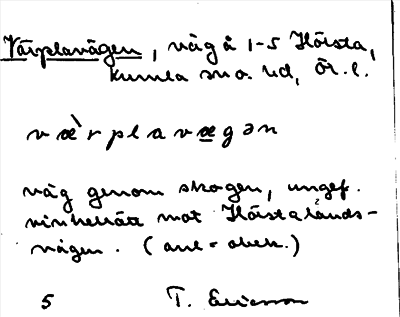 Värplavägen, väg å 1-5 Hörsta,
Kumla sn o. hd, Ör. l.
v æ̀ r p l a v æ g ə n
väg genom skogen, ungef.
vinkelrätt mot Hörstalands-
vägen. (anl = obek.)
5 T. Ericsson